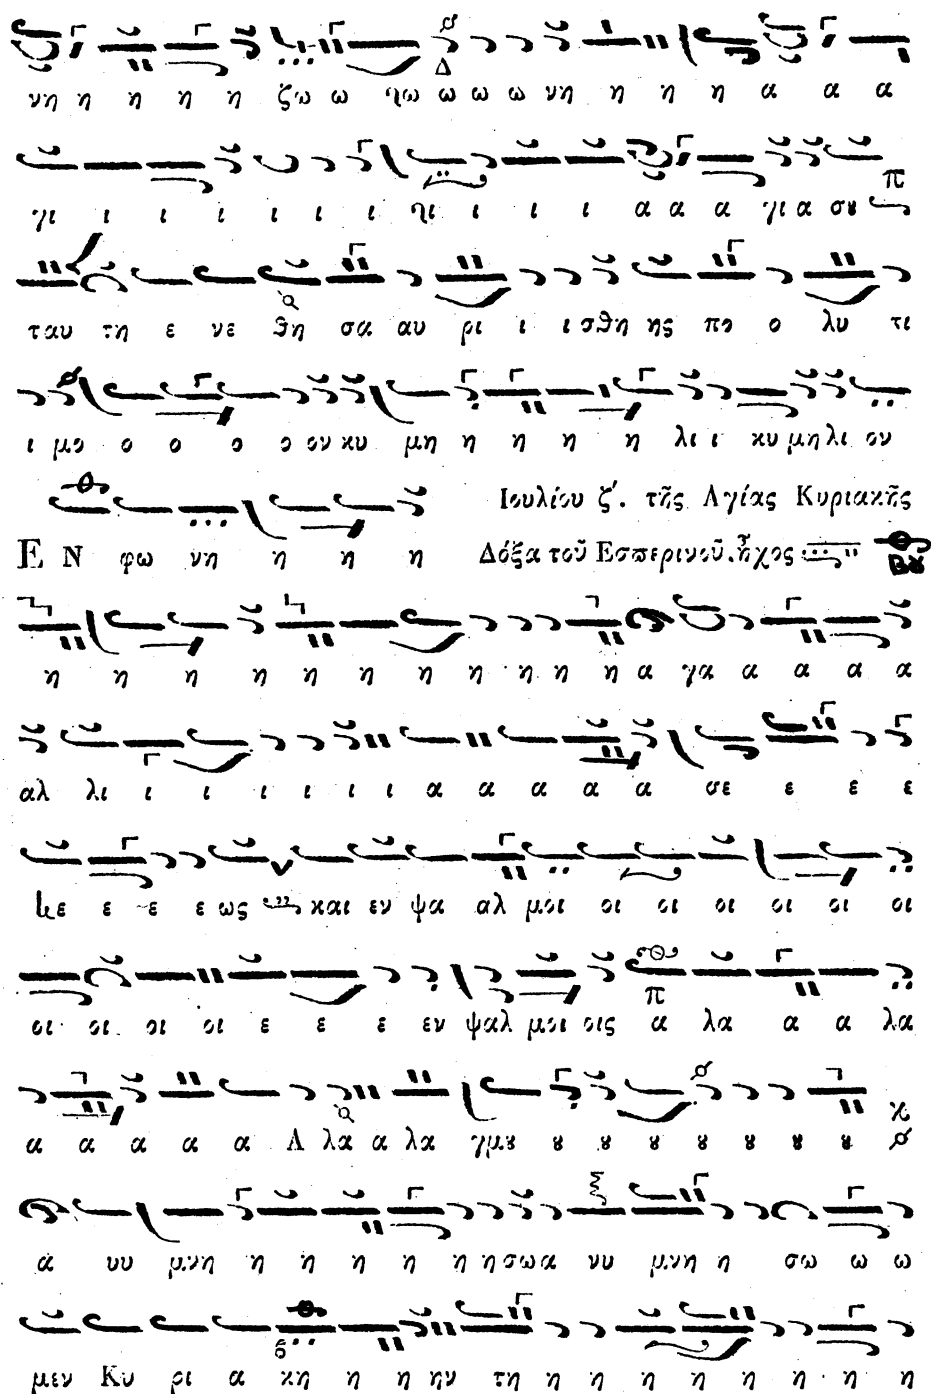 Δ
νη η η η η ζω ω ηω ω ω ω νη η η η α α α
γι ι ι ι ι ι ι ηι ι ι ι α α α γι α σȣ π
ταυ τη ε νε θη σα αυ ρι ι ι σθη ης πο ο λυ τι
ι μο ο ο ο ο ον κυ μη η η η η λι ι κυ μηλι ον
Ιουλίου ζ'. τῆς Αγίας Κυριακῆς
Ε Ν φω νη η η η η Δόξα τοῦ Εσπερινοῦ. ἦχος Βȣ
η η η η η η η η η η η α γα α α α α
αλ λι ι ι ι ι ι ι α α α α α σε ε ε ε
κε ε ε ε ως και εν ψα αλ μοι οι οι οι οι οι οι
π
οι οι οι οι ε ε ε εν ψαλ μοι οις α λα α α λα
α α α α α Α λα α λα γμȣ ȣ ȣ ȣ ȣ ȣ ȣ ȣ
α υυ μνη η η η η η η σωα νυ μνη η σω ω ω
μεν Κυ ρι α κη η η ην τη η η η η η η η